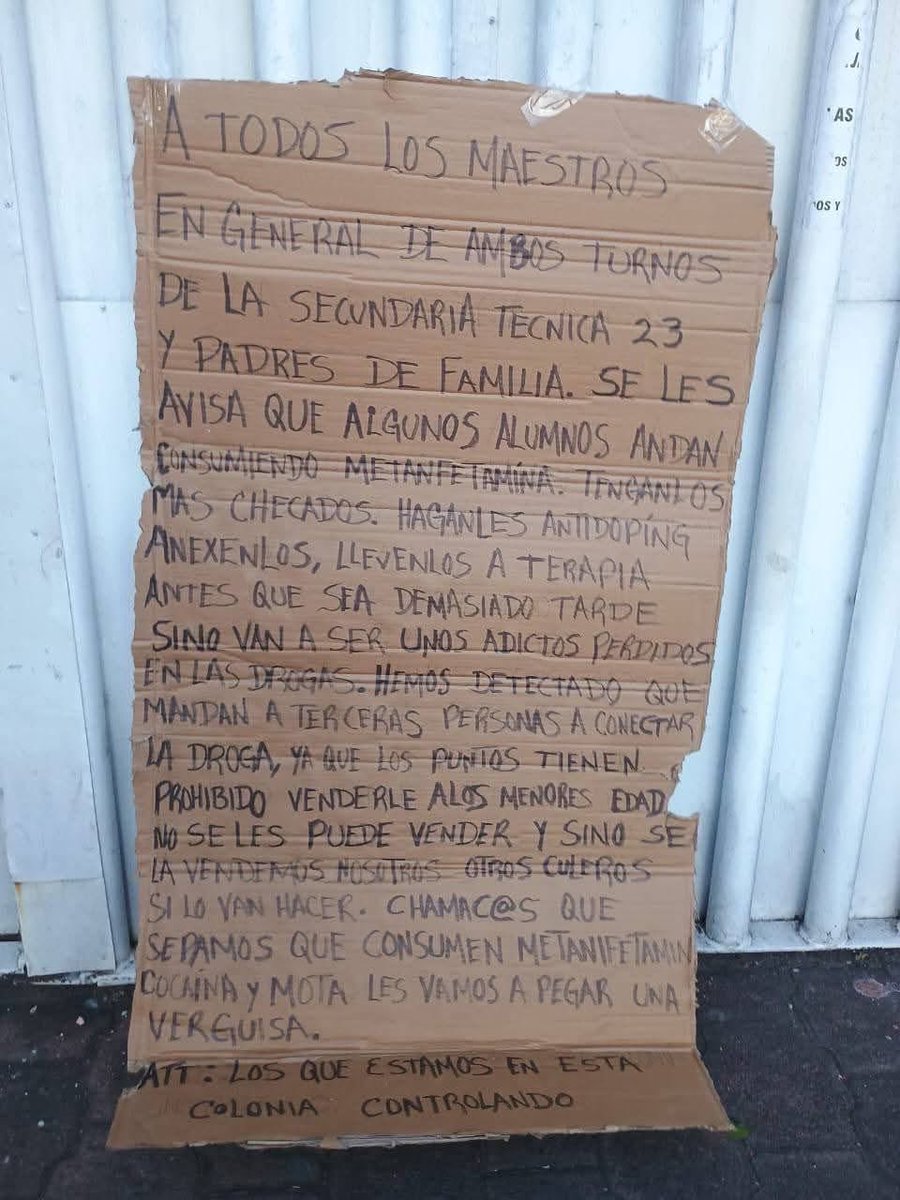 A TODOS LOS MAESTROS
EN GENERAL DE AMBOS TURNOS
DE LA SECUNDARIA TECNICA 23
Y PADRES DE FAMILIA. SE LES
AVISA QUE ALGUNOS ALUMNOS ANDAN
CONSUMIENDO METANFETAMÍNA. TENGANLOS
MAS CHECADOS. HAGANLES ANTIDOPÍNG
ANEXENLOS, LLEVENLOS A TERAPIA
ANTES QUE SEA DEMASIADO TARDE
SINO VAN A SER UNOS ADICTOS PERDIDOS
EN LAS DROGAS. HEMOS DETECTADO QUE
MANDAN A TERCERAS PERSONAS A CONECTAR
LA DROGA, YA QUE LOS PUNTOS TIENEN
PROHIBIDO VENDERLE ALOS MENORES EDAD
NO SE LES PUEDE VENDER Y SINO SE
LA VENDEMOS NOSOTROS OTROS CULEROS
SI LO VAN HACER. CHAMAC@S QUE
SEPAMOS QUE CONSUMEN METANIFETAMIN
COCAÍNA Y MOTA LES VAMOS A PEGAR UNA
VERGUISA.
ATT: LOS QUE ESTAMOS EN ESTA
COLONIA CONTROLANDO
AS
OS
OS Y